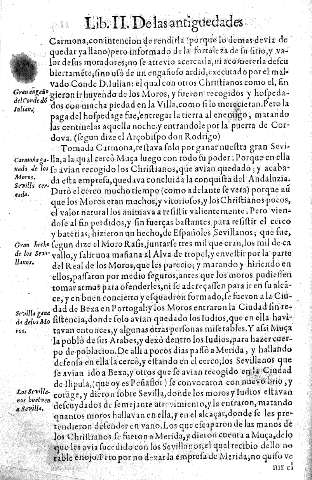 Lib. II. De las antiguedades
Carmona, con intencion de rendirla (porque lo demas devia de
quedar ya llano) pero informado de la fortaleza de su sitio, y va
lor de sus moradores, no se atrevio a cercarla, ni acometerla descu
biertaméte, sino usó de un engañoso ardid, executado por el mal
vado Conde D. Iulian: el qual con otros Christianos como el, fin
gieron ir huyendo de los Moros, y fueron recogidos y hospeda-
dos con mucha piedad en la Villa, como si lo merecieran. Pero la
paga del hospedage fue, entregar la tierra al enemigo, matando
las centinelas aquella noche, y entrandole por la puerta de Cor-
dova. (segun dize el Arçobispo don Rodrigo)
Gran engaño
del Conde dō
Iulian.
Tomada Carmona, restava solo por ganar nuestra gran Sevi-
lla, a la qual cercó Maça luego con todo su poder: Porque en ella
se avian recogido los Christianos, que avian quedado; y acaba-
da esta empresa, quedava concluida la conquista del Andaluzia.
Duró el cerco mucho tiempo (como adelante se verá) porque aū
que los Moros eran muchos, y vitoriosos, y los Christianos pocos,
el valor natural los animava a resistir valientemente. Pero vien-
dose al fin perdidos, y sin fuerças bastantes para resistir el cerco
y baterias, hizieron un hecho, de Españoles Sevillanos; que fue,
segun dize el Moro Rasis, juntarse tres mil que eran, los mil de ca-
vallo, y salir una mañana al Alva de tropel, y envestir por la parte
del Real de los Moros, que les parecio; y matando y hiriendo en
ellos, passaron por medio seguros, antes que los moros pudiessen
tomar armas para ofenderles, ni se adereçassen para ir en su alcā-
ce, y en buen concierto y esquadron formado, se fueron a la Ciu-
dad de Bexa en Portogal: y los Moros entraron la Ciudad sin re-
sistencia, donde solo avian quedado los Iudios, que en ella havi-
tavan entonces, y algunas otras personas miserables. Y asi Muça
la pobló de sus Arabes, y dexó dentro los Iudios, para hazer cuer-
po de poblacion. De alli a pocos dias passó a Merida, y hallando
defensa en ella la cercó, y estando en el cerco, los Sevillanos que
se avian ido a Bexa, y otros que se avian recogido en la Ciudad
de Ilipula, (que oy es Peñaflor) se convocaron con nuevo brio, y
corage, y dieron sobre Sevilla, donde los moros y Iudios estavan
descuydados de semejante atrevimiento, y la entraron, matando
quantos moros hallavan en ella, y en el alcaçar, donde se les pre-
tendieron defender en vano. Los que escaparon de las manos de
los Christianos se fueron a Merida, y dieron cuenta a Muça, de lo
que les avia sucedido con los Sevillanos, el qual recibio dello no
table enojo. Pero por no dexar la empresa de Merida, no quiso ve
Carmona ga-
nada de los
Moros.
Sevilla cer-
cada.
Gran hecho
de los Sevi-
llanos.
Sevilla gana
da de los Mo
ros.
Los Sevilla-
nos buelven
a Sevilla.